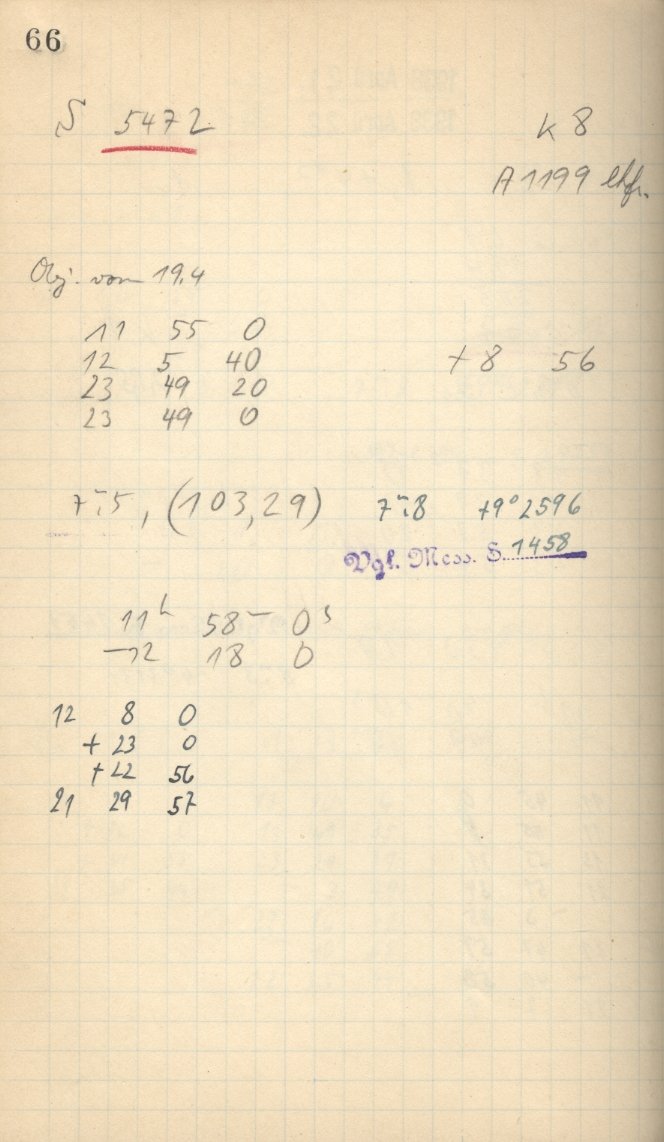 66
S 5472 K 8
A 1199
Obj. vom 19.4
11 55 0
12 5 40 + 8 56
23 49 20
23 49 0
7m5, (103,29) 7m8 +9°2596
Vgl. Mess. S. 1458
11h 58m 0s
-12 18 0
12 8 0
+ 23 0
+ 22 56
21 29 57